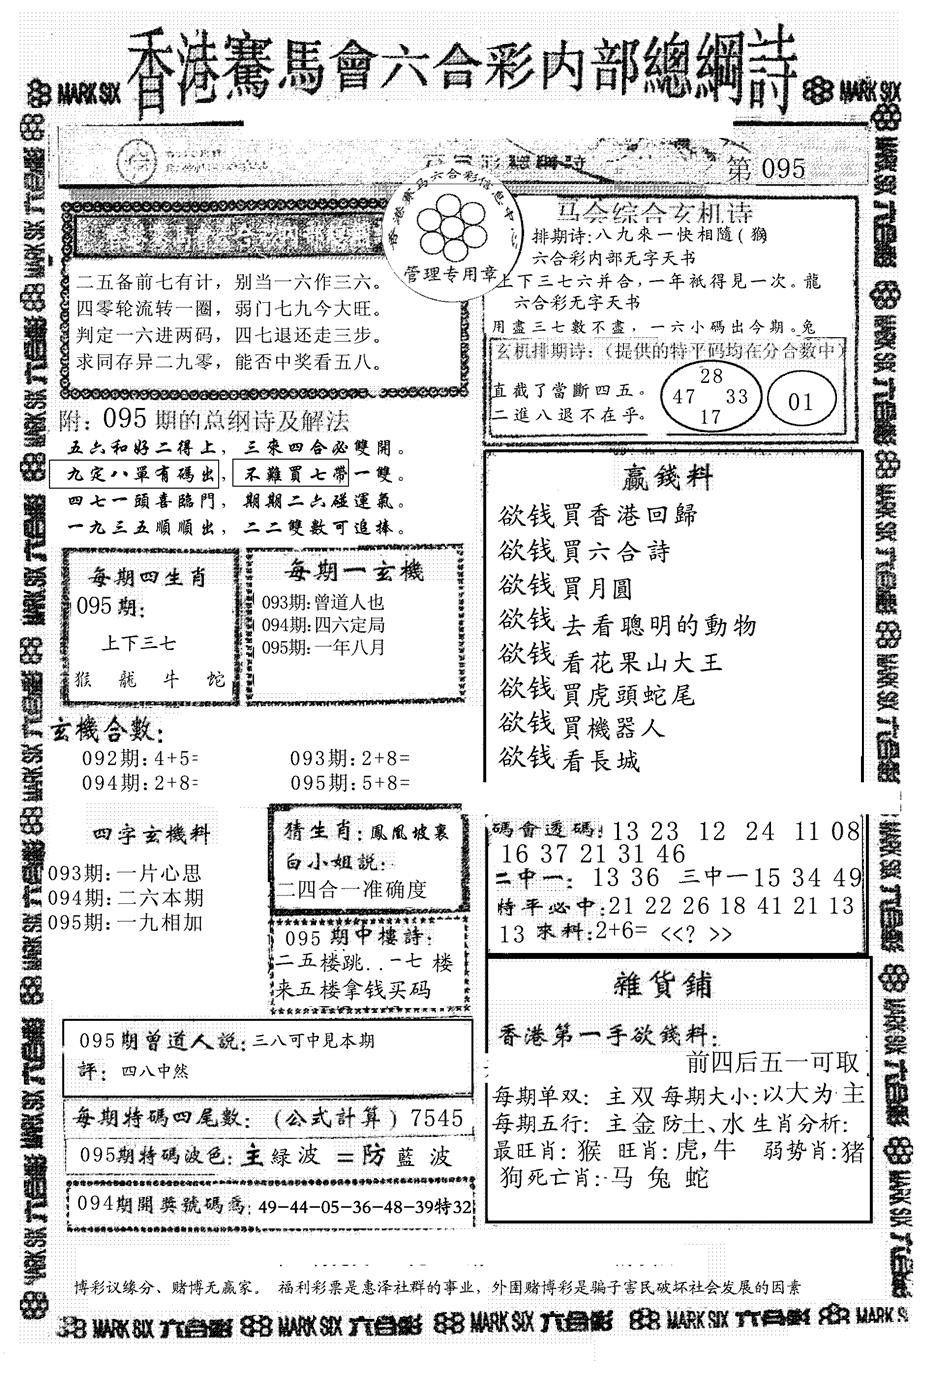 香港賽馬會六合彩内部總綱詩
MARK SIX
MARK SIX
第 095
香港赛马六合彩信息中
管理专用章
二五备前七有计，别当一六作三六。
四零轮流转一圈，弱门七九今大旺。
判定一六进两码，四七退还走三步。
求同存异二九零，能否中奖看五八。
附：095期的总纲诗及解法
五六和好二得上，三來四合必雙開。
九定八單有碼出，不難買七帶一雙。
四七一頭喜臨門，期期二六碰運氣。
一九三五順順出，二二雙數可追捧。
每期四生肖
095期：
上下三七
猴 龍 牛 蛇
每期一玄機
093期:曾道人也
094期:四六定局
095期:一年八月
玄機合數：
092期:4+5= 093期:2+8=
094期:2+8= 095期:5+8=
四字玄機料
093期:一片心思
094期:二六本期
095期:一九相加
猜生肖：鳳凰坡裏
白小姐説：
二四合一准确度
095期中樓詩：
二五楼跳..一七 楼
来五楼拿钱买码
095期曾道人説：三八可中見本期
評：四八中然
每期特碼四尾數：(公式計算) 7545
095期特碼波色：主 緑 波 =防 藍 波
094期開獎號碼爲：49-44-05-36-48-39特32
马会综合玄机诗
排期诗:八九來一快相隨(猴
六合彩内部无字天书
上下三七六并合，一年祇得見一次。龍
六合彩无字天书
用盡三七數不盡，一六小碼出今期。兔
玄机排期诗：（提供的特平码均在分合數中）
直截了當斷四五。
二進八退不在乎。
28
47 33
17
01
贏錢料
欲钱買香港回歸
欲钱買六合詩
欲钱買月圓
欲钱去看聰明的動物
欲钱看花果山大王
欲钱買虎頭蛇尾
欲钱買機器人
欲钱看長城
碼會透碼：13 23 12 24 11 08
16 37 21 31 46
二中一：13 36 三中一15 34 49
特平必中：21 22 26 18 41 21 13
13 來料：2+6= <<? >>
雜貨鋪
香港第一手欲錢料：
前四后五一可取
每期单双：主双 每期大小:以大为主
每期五行：主金防土、水生肖分析:
最旺肖：猴 旺肖:虎,牛 弱势肖:猪
狗死亡肖:马 兔 蛇
博彩议缘分、赌博无赢家。 福利彩票是惠泽社群的事业，外围赌博彩是骗子害民破坏社会发展的因素
MARK SIX 六合彩 MARK SIX 六合彩 MARK SIX 六合彩 MARK SIX 六合彩 MARK SIX